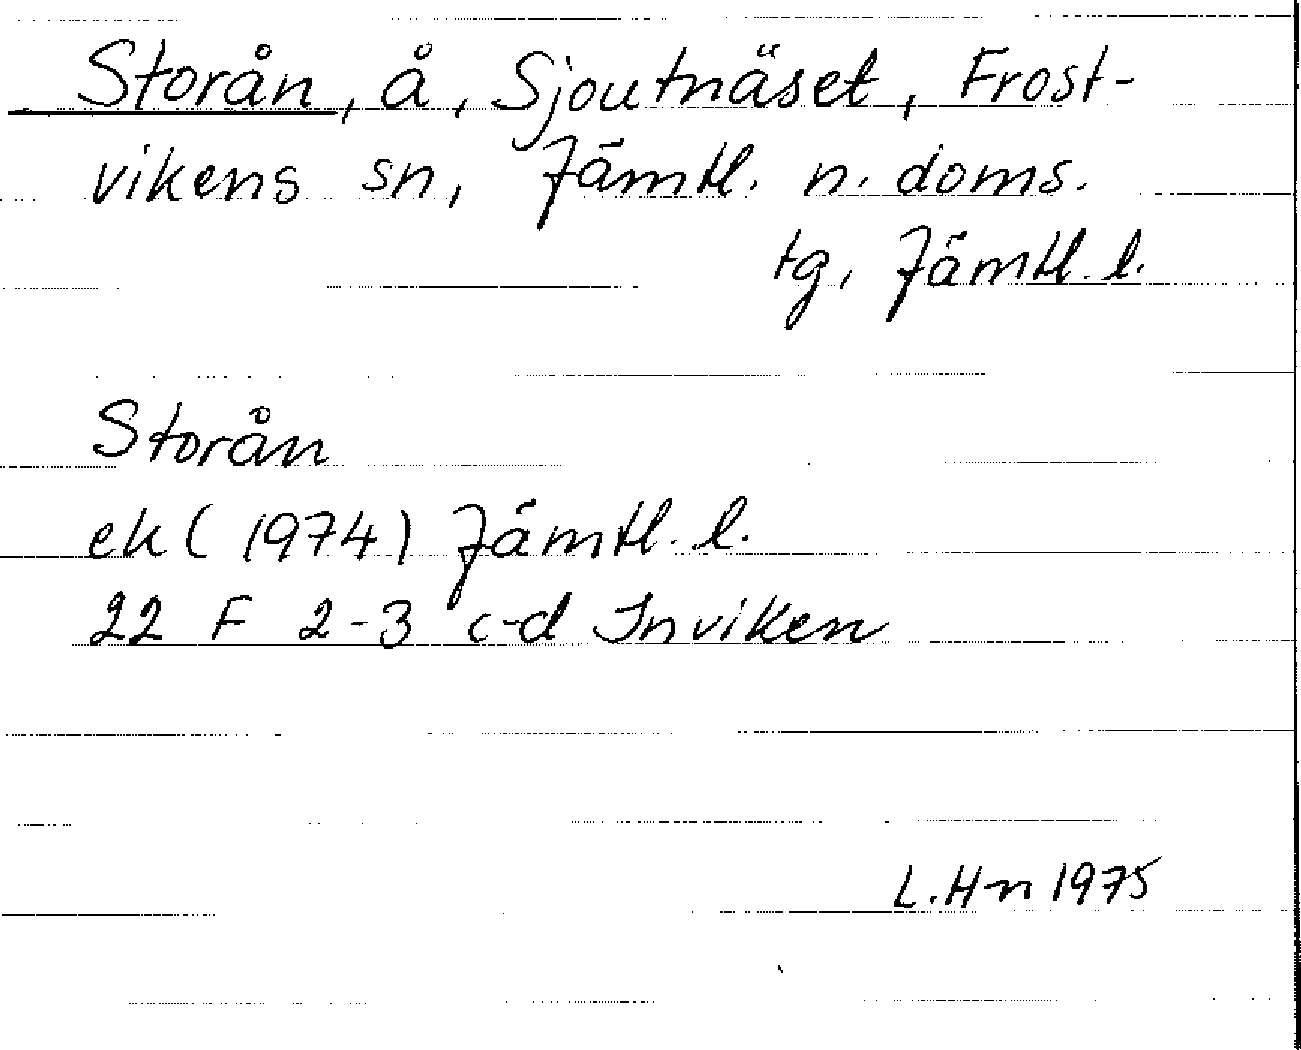 Storån, å, Sjoutnäset, Frost-
vikens sn, Jämtl. n. doms.
tg, Jämtl. l.
Storån
ek (1974) Jämtl. l.
22 F 2-3 c-d Inviken
L. Hn 1975